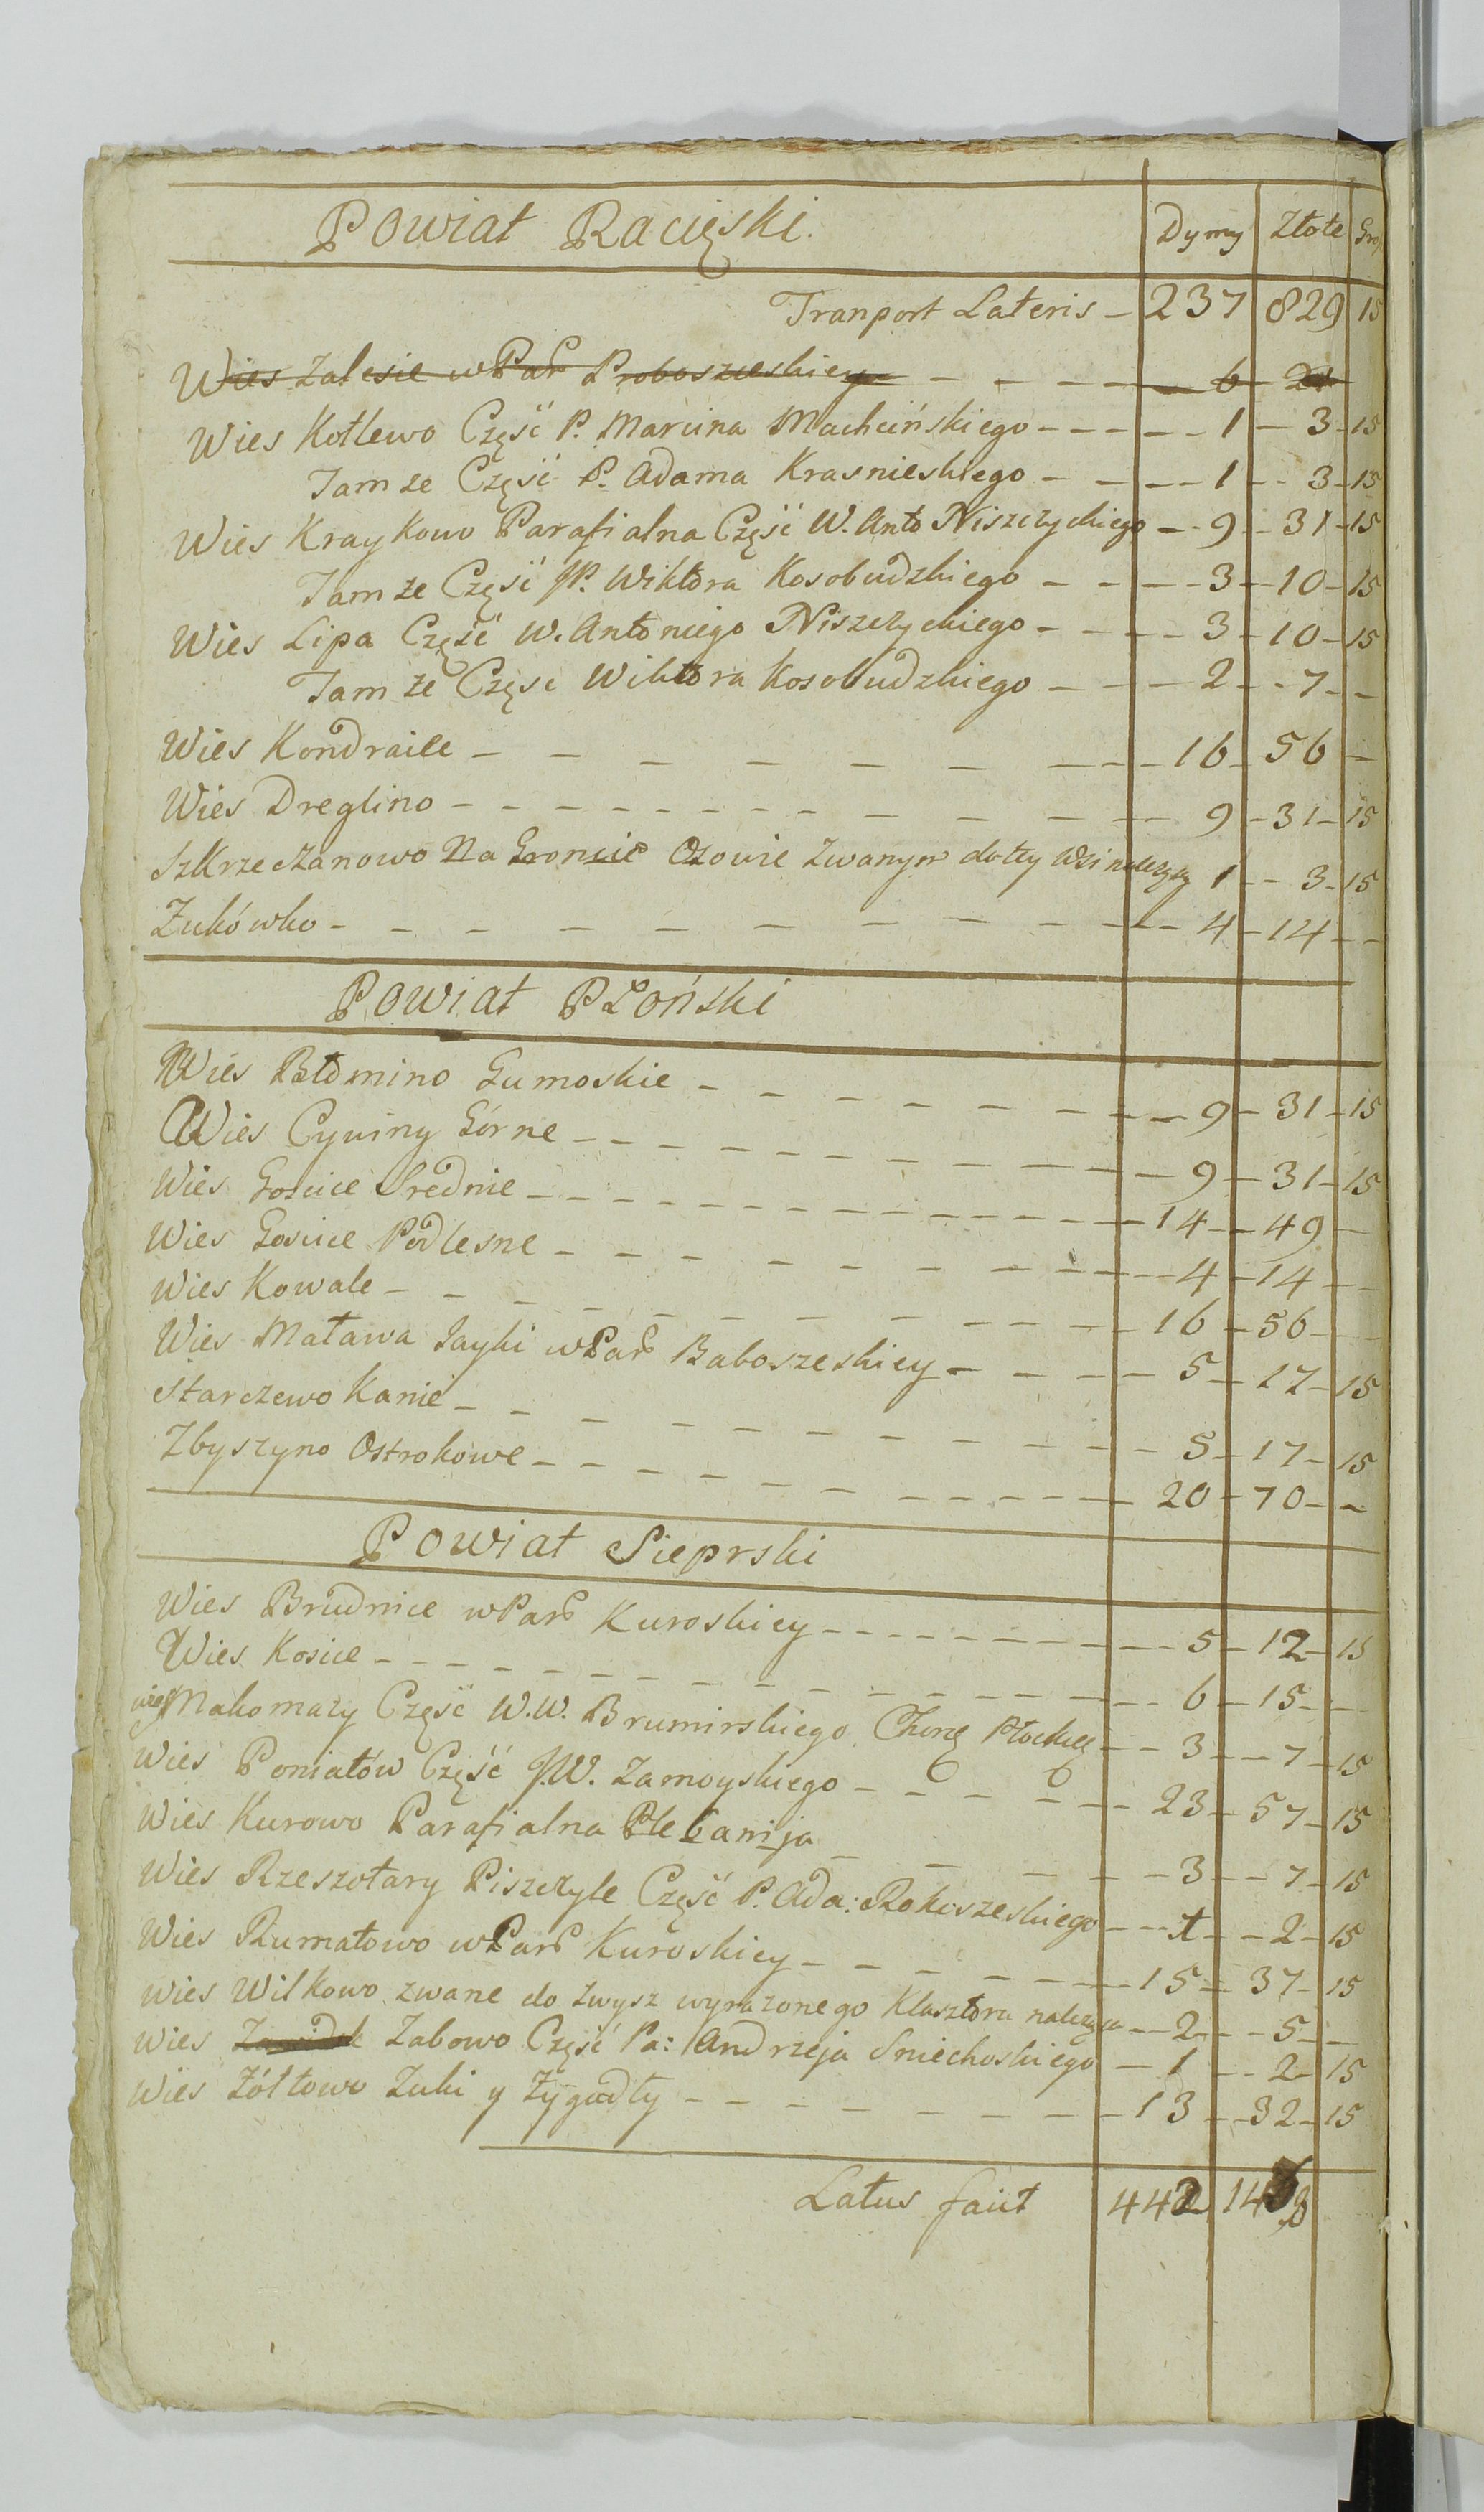 Powiat Racięski. Dymy Złote Gro
Tranport Lateris 237 829 15
Wies Zalesie w Par Proboszczeskiey 6 21
Wies Kotlewo Część P. Marcina Machcińskiego 1 3 15
Tamze Część P. Adama Krasnieskiego 1 3 15
Wies Kraykowo Parafialna Część W. Anto Niszczyckiego 9 31 15
Tamze Część JP. Wiktora Kosobudzkiego 3 10 15
Wies Lipa Część W. Antoniego Niszczyckiego 3 10 15
Tamze Częsc Wiktora Kosobudzkiego 2 7
Wies Kondraice 16 56
Wies Dreglino 9 31 15
Szkrzeczanowo Na Groncie Ozowie Zwanym do tey Wsi należący 1 3 15
Zukówko 4 14
Powiat Płoński
Wies Błomino Gumoskie 9 31 15
Wies Cywiny Górne 9 31 15
Wies Goscice Srednie 14 49
Wies Goscice Podlesne 4 14
Wies Kowale 16 56
Wies Maława Jayki w Par Baboszeskiey 5 17 15
Starczewo Kanie 5 17 15
Zbyszyno Ostrokowe 20 70
Powiat Sieprski
Wies Brudnice w Par Kuroskiey 5 12 15
Wies Kosice 6 15
wies Makomazy Część W.W. Brumirskiego Chorę Płockieg 3 7 15
Wies Poniatów Część J.W. Zamoyskiego 23 57 15
Wies Kurowo Parafialna Plebanija 3 7 15
Wies Rzeszotary Piszczyle Część P. Ada: Rokiszeskiego 1 2 15
Wies Rumatowo w Par Kuroskiey 15 37 15
Wies Wilkowo zwane do zwysz wyrażonego Klasztoru należące 2 5
Wies Zabowo Część Pa: Andrzeja Sniechoskiego 1 2 15
Wies Zółtowo Zuki y Zygadły 13 32 15
Latus facit 442